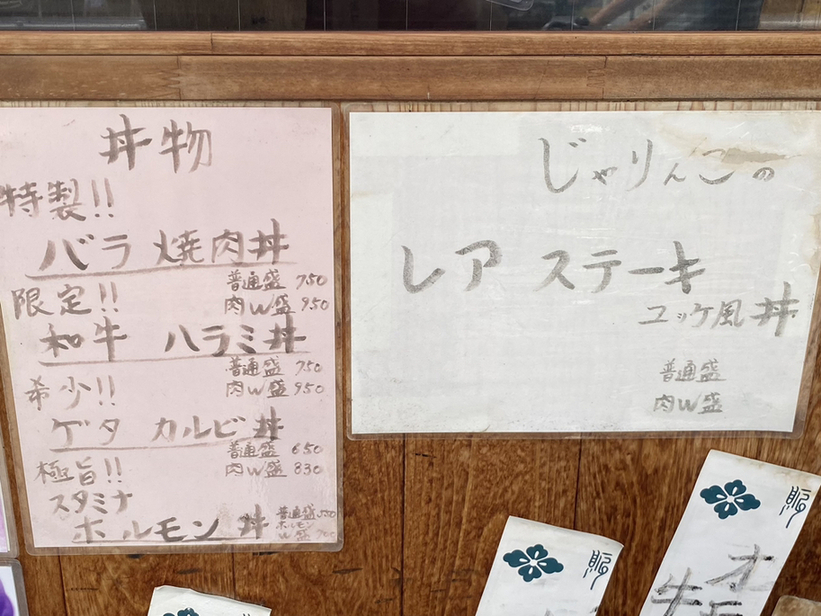 丼物
特製!!
バラ 焼肉丼
普通盛 750
肉W盛 950
限定!!
和牛 ハラミ丼
普通盛 750
肉W盛 950
希少!!
ゲタ カルビ丼
普通盛 650
肉W盛 830
極旨!!
スタミナ
ホルモン丼
普通盛 500
ホルモン
W盛 700
じゃりんこの
レア ステーキ
ユッケ風丼
普通盛
肉W盛